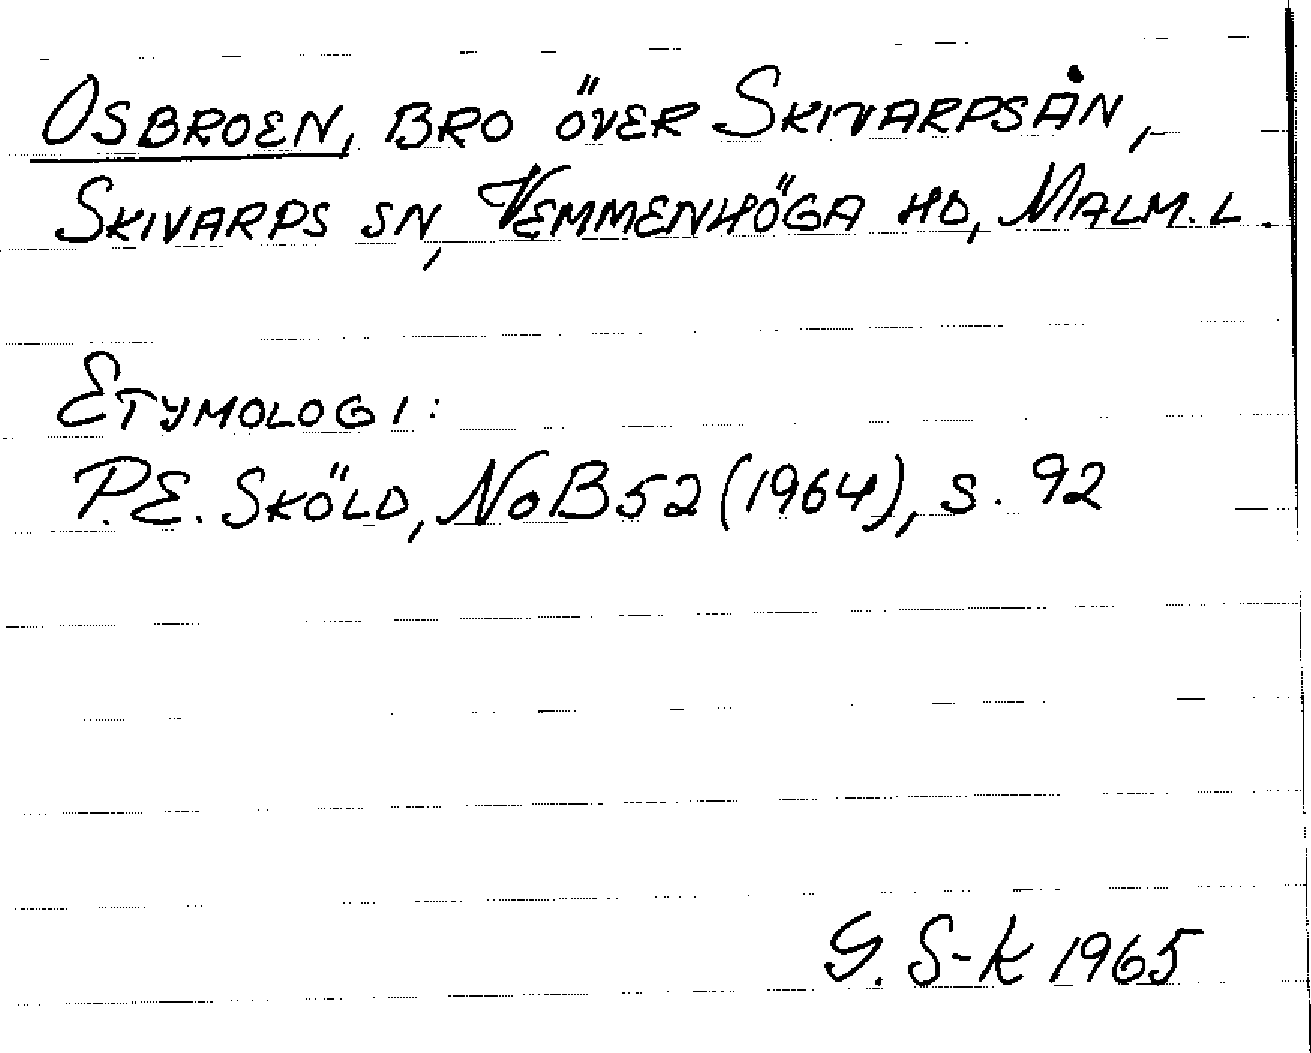 OSBROEN, BRO ÖVER SKIVARPSÅN,
SKIVARPS SN, VEMMENHÖGA HD, MALM. L.
ETYMOLOGI:
P.E. SKÖLD, NoB 52 (1964), S. 92
G. S-K 1965